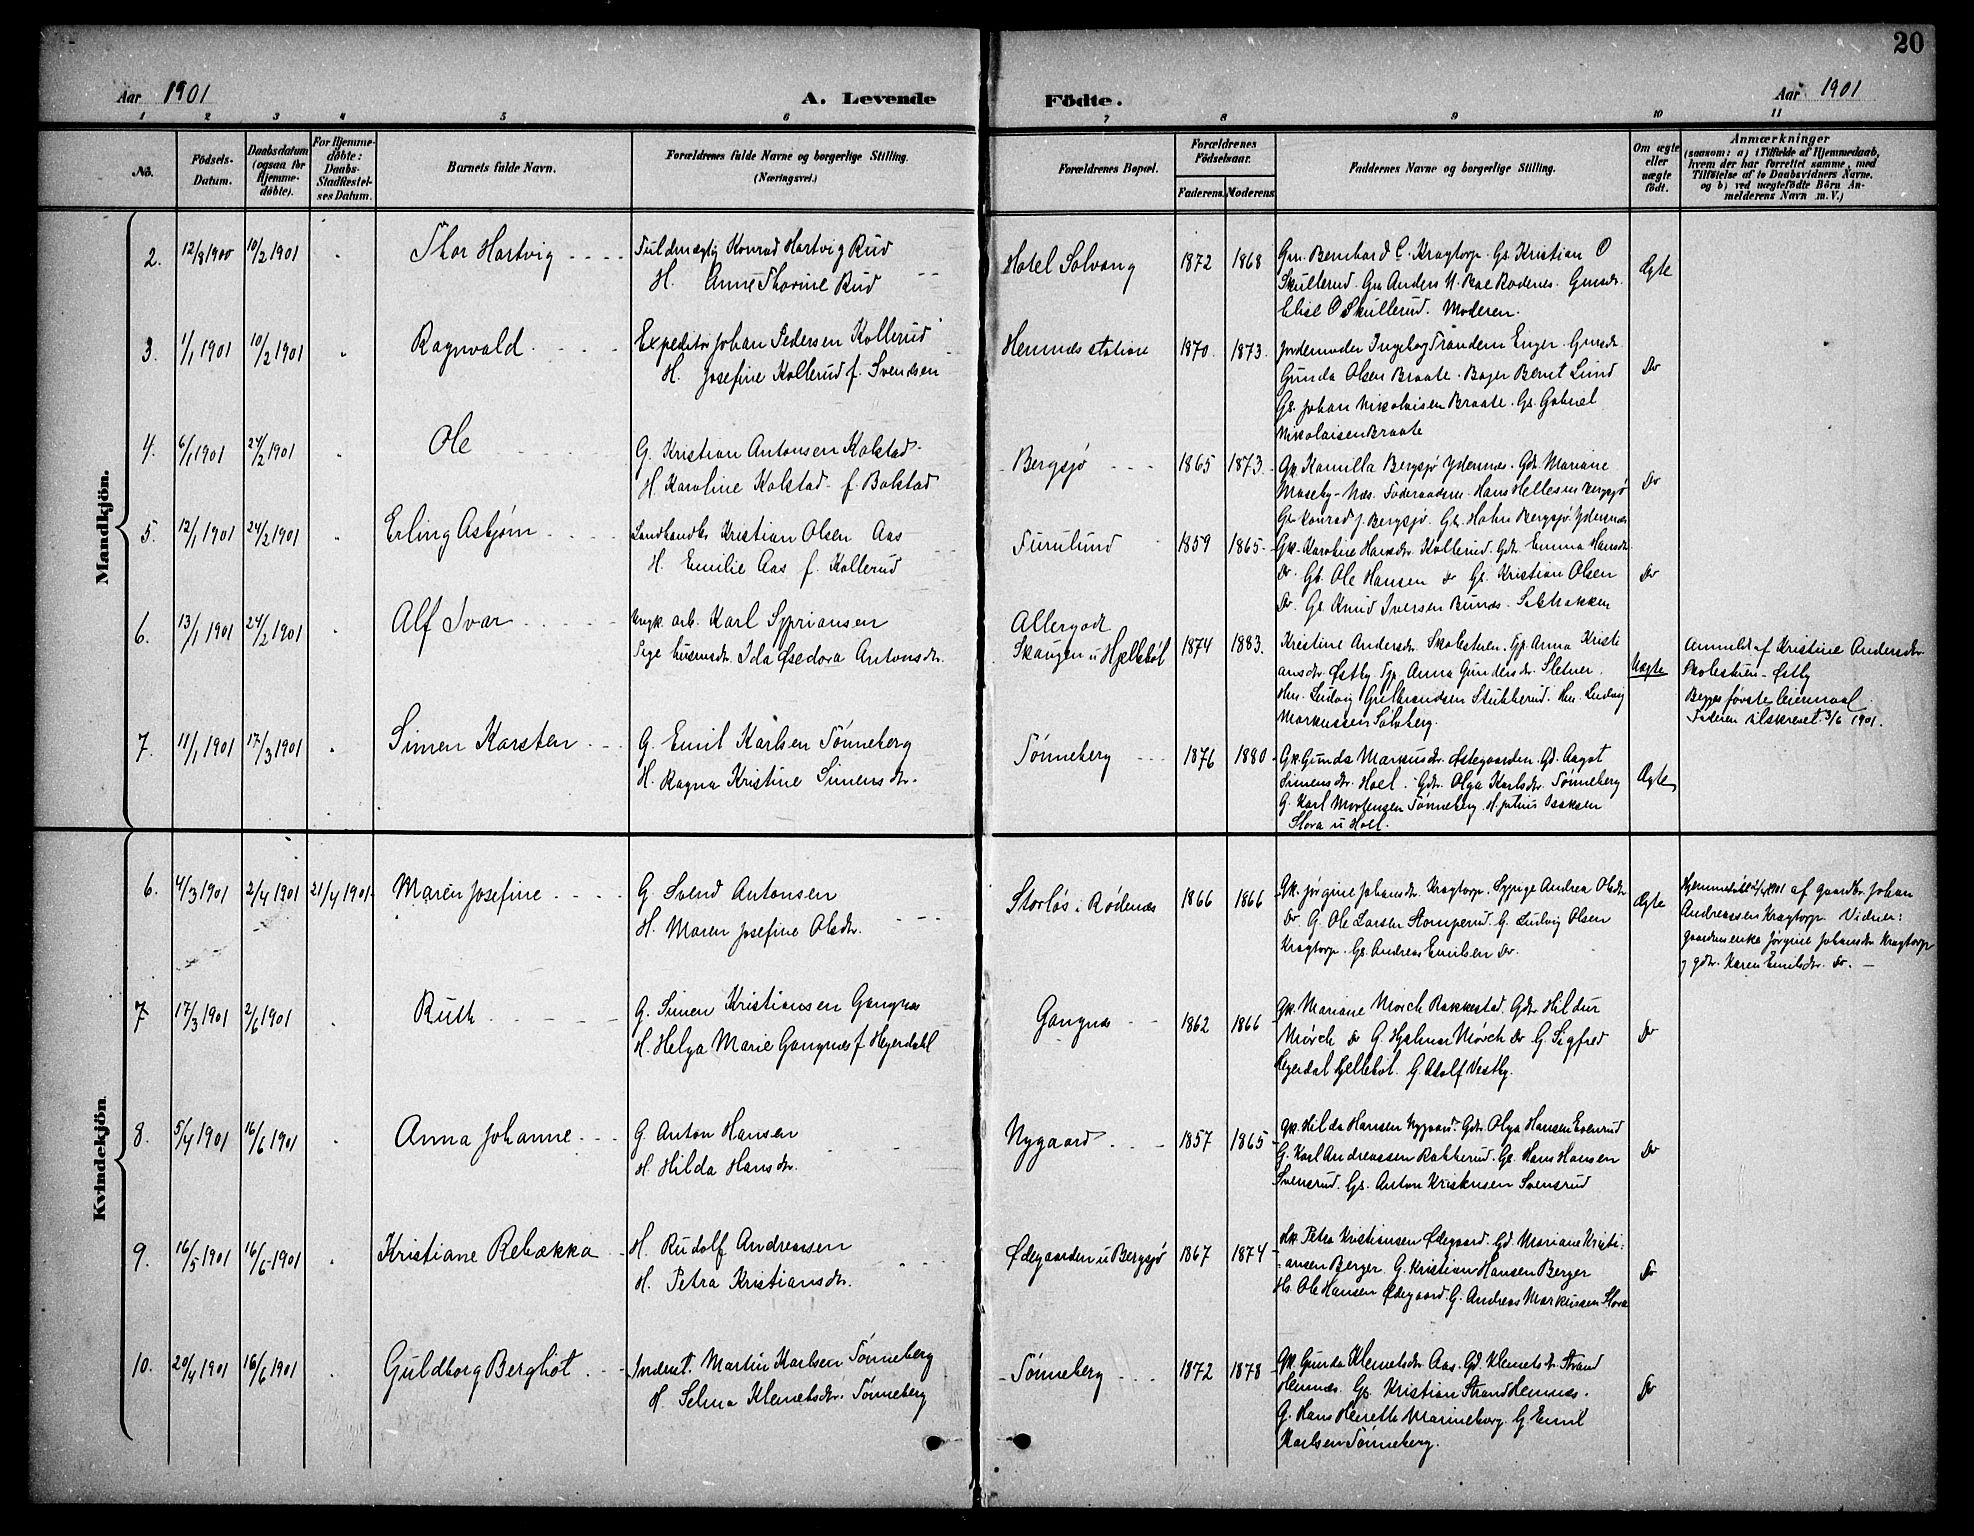 20
Aar 1901
A. Levende Födte.
Aar 1901
1 2 3 4 5 6 7 8 9 10 11
No.
Födsels-Datum.
Daabsdatum (ogsaa for Hjemme-døbte).
For Hjemme-døbte: Daabs-Stadfæstel-ses Datum.
Barnets fulde Navn.
Forældrenes fulde Navne og borgerlige Stilling. (Næringsvei.)
Forældrenes Bopæl.
Forældrenes Födselsaar.
Faderens. Moderens.
Faddernes Navne og borgerlige Stilling.
Om ægte eller uægte födt.
Anmærkninger
(saasom: a) i Tilfælde af Hjemmedaab, hvem der har forrettet samme, med Tilföielse af to Daabsvidners Navne, og b) ved uægtefödte Börn Anmelderens Navn m.V.)
Mandkjön.
2. 12/8 1900 10/2 1901 Thor Hartvig
Fuldmægtig Konrad Hartvig Rud
H. Anne Thorine Rud
Hotel Solvang 1872 1868
Gm. Bernhard C. Kragtorp. Gs. Kristian O
Skullerud. Gm Anders N. Bae Rødenes. Gmsdr.
Elise O Skullerud. Moderen.
Ægte
3. 1/1 1901 10/2 1901 Ragnvald
Expeditør Johan Pedersen Kollerud
H. Josefine Kollerud f. Svendsen
Hemnæs station 1870 1873
Jordemoder Ingeborg Trandem Enger. Gmsdr.
Gunda Olsen Braate. Bager Bernt Lund
Gs. Johan Nikolaisen Braate. Gs. Gabriel
Nikolaisen Braate
Do
4. 6/1 1901 24/2 1901 Ole
G. Kristian Antonsen Kolstad
H. Karoline Kolstad f. Bolstad
Bergsjø 1865 1873
Gk. Kamilla Bergsjø Ydennes. Gdr. Mariane
Moseby-Næs. Hans Hellesen Bergsjø
Gs. Konrad J Bergsjø. Bergsjø. Ydennes
Do
5. 12/1 1901 24/2 1901 Erling Asbjørn
Landhandler Kristian Olsen Aas
H. Emilie Aas f. Kollerud
Furulund 1859 1865
Gk. Karoline Hansdr. Kollerud. Gdr. Emma Hansdr.
Do. Gb. Ole Hansen do Gs. Kristian Olsen
Do. Gs. Knud Iversen Bunæs.
Do
6. 13/1 1901 24/2 1901 Alf Ivar
arb. Karl Sypriansen
Pige husmdr. Ida Øsedora Antonsdr.
Allergodt
Skaugen u Hjellebøl 1874 1883
Kristine Andersdr. Skolestuen. Gp. Anna Kristi
ansdr. Østby. Anna Gundersdr. Sletner.
Ludvig Gulbrandsen Stubberud. Ludvig
Markussen Solberg.
Uægte
Anmeldt af Kristine Andersdr
Skolestuen - Østby
Begges første leiermaal
Faderen tilskrevet 3/6 1901.
7. 11/1 1901 17/3 1901 Simen Karsten
G. Emil Karlsen Tønneberg
H. Ragna Kristine Simensdr.
Tønneberg 1876 1880
Gk. Gunda Markusdr. Østegaarden. Gd. Aagot
Simensdr. Hoel. Gdr. Olga Karlsdr. Tønneberg
G. Karl Mortensen Tønneberg. H. Julius Isaksen
Slora u Hoel.
Ægte
Kvindekjön
6. 4/3 1901 2/4 1901 21/4 1901 Maren Josefine
G. Svend Antonsen
H. Maren Josefine Olsdr.
Storløs i Rødenæs 1866 1866
Gk. Jørgine Johansdr. Kragtorp. Andrea Olsdr
Do G. Ole Larsen Stomperud. G. Ludvig Olsen
Kragtorp. Gs. Andreas Emilsen Do.
Ægte
Hjemmedøbt 2/4 1901 af gaardbr. Johan
Andreassen Kragtorp. Vidner:
gaardmenke Jørgine Johansdr Kragtorp
og gdr. Karen Emilsdr. Do. —
7 17/3 1901 2/6 1901 Ruth
G. Simen Kristiansen Gangnæs
H. Helga Marie Gangnæs f Heyerdahl
Gangnæs 1862 1866
Gk. Mariane Mørch Rakkestad. Gdr. Hildur
Mørch do G. Hjalmar Mørch do G. Sigfred
Heyerdal Hjellebøl. G. Adolf Vestby.
Do
8. 5/4 1901 16/6 1901 Anna Johanne
G. Anton Hansen
H. Hilda Hansdr.
Nygaard 1857 1865
Gk. Hilda Hansen Nygaard. Gdr. Olga Hansen Evenrud
G. Karl Andreassen Rakkerud. Gs. Hans Hansen
Svensrud. Gs. Anton Kristensen Svensrud
Do
9. 16/5 1901 16/6 1901 Kristiane Rebækka
H. Rudolf Andreassen
H. Petra Kristiansdr.
Ødegaarden u Bergsjø 1867 1874
Hk. Petra Kristiansen Ødegaard. Gd. Mariane Kristi-
ansen Berger. G. Kristian Hansen Berger
Hs. Ole Hansen Ødegaard. G. Andreas Markussen Slora
Do
10. 20/4 1901 16/6 1901 Guldborg Berghot
Inderst. Martin Karlsen Tønneberg
H. Selma Klemetsdr. Tønneberg
Tønneberg 1872 1878
Gk. Gunda Klemetsdr. Aas. Gd. Klemetsdr. Strand
Hemnæs. Gs. Kristian Strand Hemnæs.
G. Hans Henrik Marineborg. G. Emil
Karlsen Tønneberg.
Do